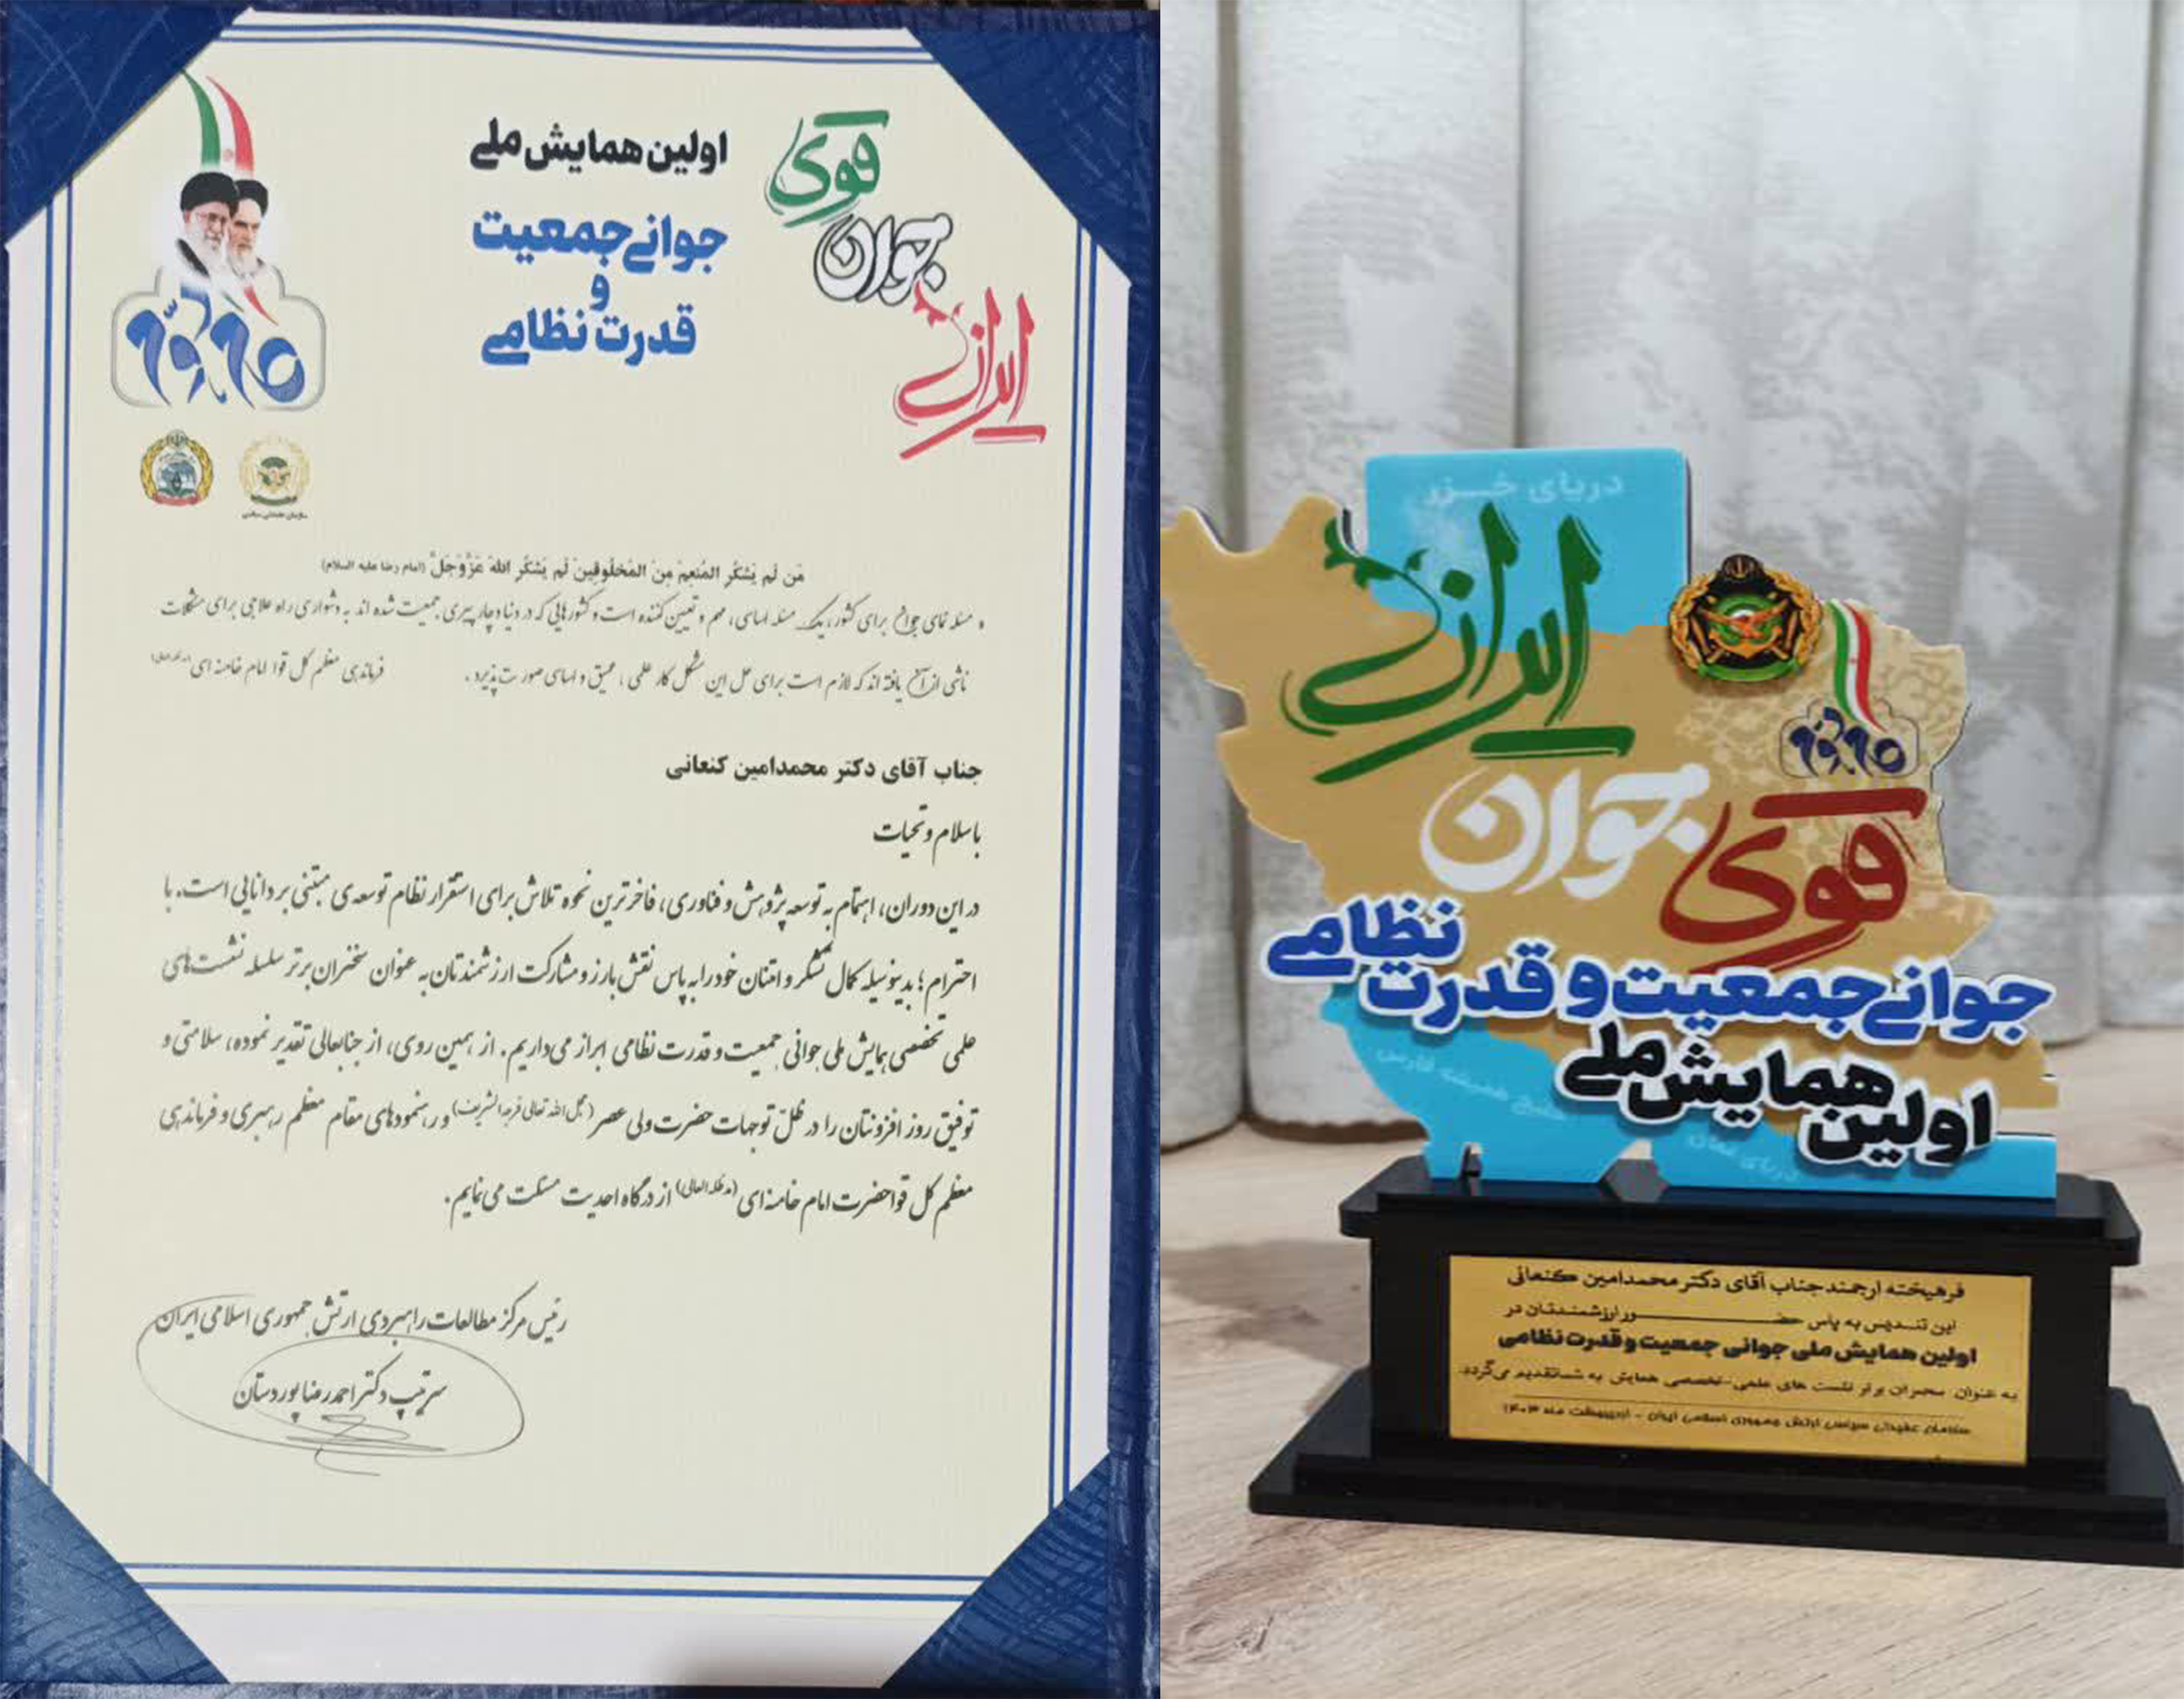 اولین همایش ملی
جوانی جمعیت
و
قدرت نظامی
ایران
جوان
قوی
سازمان عقیدتی سیاسی
مَن لَم یَشکُرِ المُنعِمَ مِنَ المَخلُوقینَ لَم یَشکُرِ اللهَ عَزَّوَجَلَّ (امام رضا علیه السلام)
مسئله نمای جوان برای کشور، یک مسئله اساسی، مهم و تعیین کننده است و کشورهایی که در دنیا دچار پیری جمعیت شده اند به دشواری راه علاجی برای مشکلات
ناشی از آن یافته اند که لازم است برای حل این مشکل کار علمی، عمیق و اساسی صورت پذیرد. فرماندهی معظم کل قوا امام خامنه ای (مدظله العالی)
جناب آقای دکتر محمدامین کنعانی
با سلام و تحیات
در این دوران، اهتمام به توسعه پژوهش و فناوری، فاخرترین نحوه تلاش برای استقرار نظام توسعه‌ی مبتنی بر دانایی است. با
احترام؛ بدینوسیله کمال تشکر و امتنان خود را به پاس نقش بارز و مشارکت ارزشمندتان به عنوان سخنران برتر سلسله نشست‌های
علمی تخصصی همایش ملی جوانی جمعیت و قدرت نظامی ابراز می‌داریم. از همین روی، از جنابعالی تقدیر نموده، سلامتی و
توفیق روز افزونتان را در ظلّ توجهات حضرت ولی عصر (عجل الله تعالی فرجه الشریف) و رهنمودهای مقام معظم رهبری و فرماندهی
معظم کل قوا حضرت امام خامنه‌ای (مدظله العالی) از درگاه احدیت مسئلت می‌نمایم.
رئیس مرکز مطالعات راهبردی ارتش جمهوری اسلامی ایران
سرتیپ دکتر احمدرضا پوردستان
دریای خـــزر
ایران
جوان
قوی
جوانی جمعیت و قدرت نظامی
اولین همایش ملی
خلیج همیشه فارس
دریای عمان
فرهیخته ارجمند جناب آقای دکتر محمدامین کنعانی
این تندیس به پاس حضـــــور ارزشمندتان در
اولین همایش ملی جوانی جمعیت و قدرت نظامی
به عنوان سخنران برتر نشست های علمی-تخصصی همایش به شما تقدیم می‌گردد.
سازمان عقیدتی سیاسی ارتش جمهوری اسلامی ایران - اردیبهشت ماه ۱۴۰۳